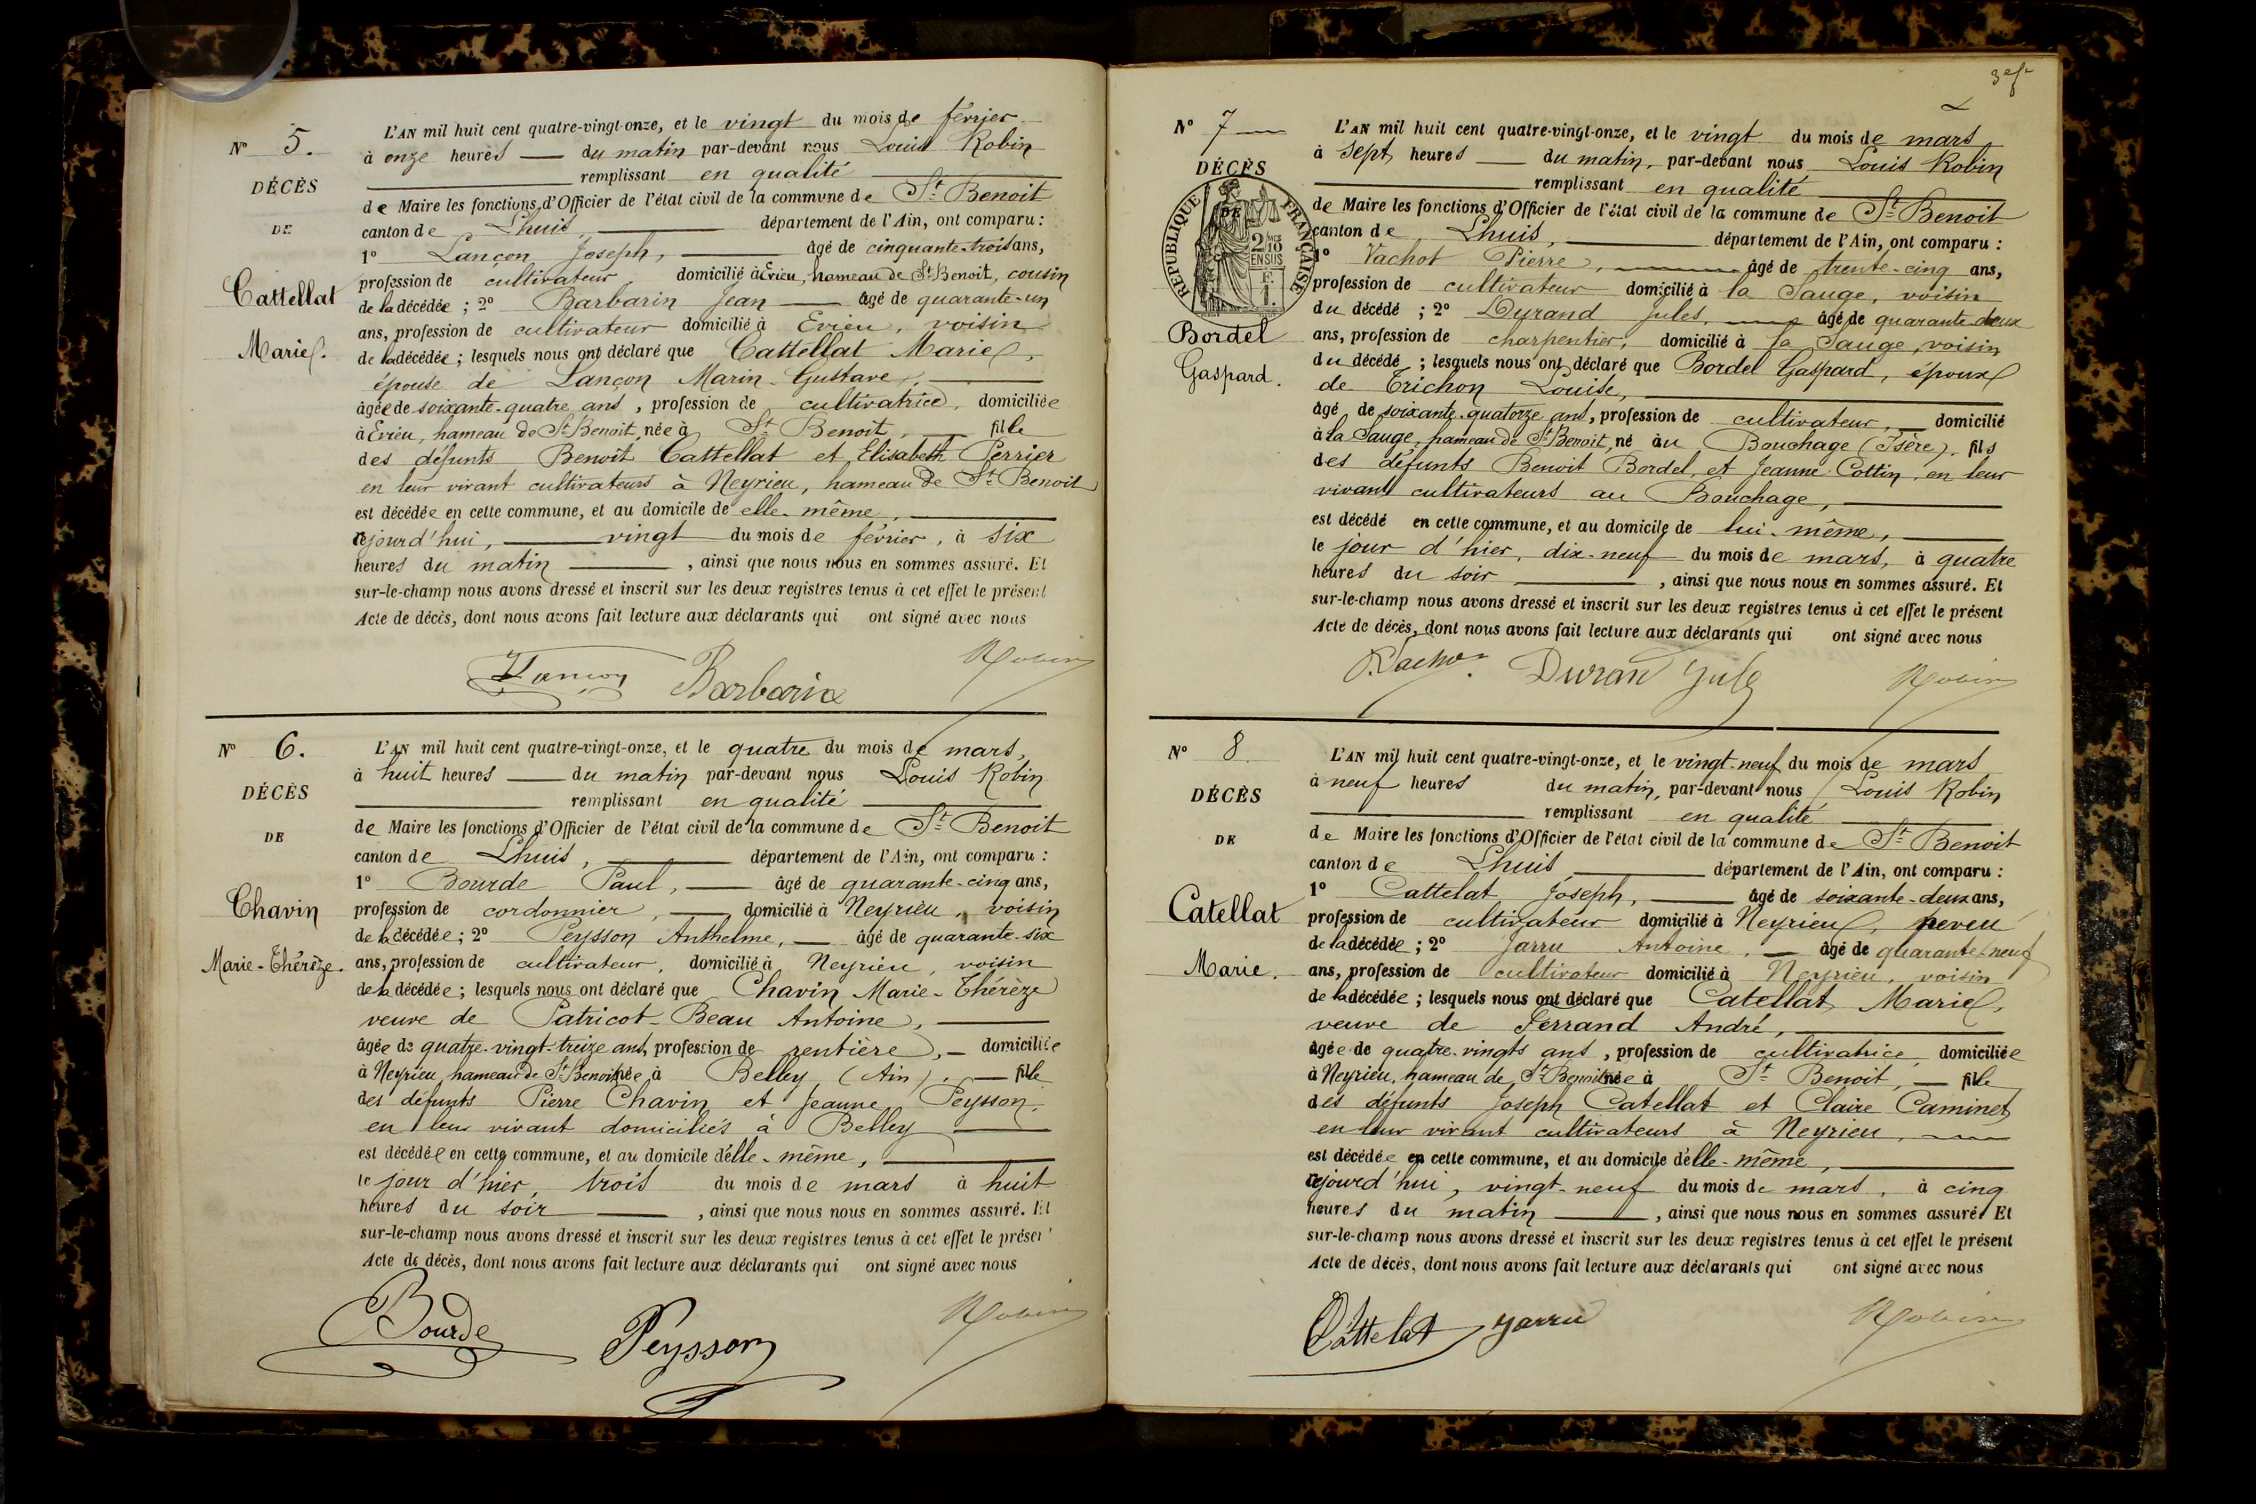 N° 5.
DÉCÈS
DE
Cattellat
Marie.
L'AN mil huit cent quatre-vingt-onze, et le vingt du mois de février
à onze heures du matin par-devant nous Louis Robin
remplissant en qualité
de Maire les fonctions d'Officier de l'état civil de la commune de St Benoit
canton de Lhuis, département de l'Ain, ont comparu :
1° Lançon Joseph, âgé de cinquante-trois ans,
profession de cultivateur domicilié à Evieu, hameau de St Benoit, cousin
de la décédée ; 2° Barbarin Jean âgé de quarante-un
ans, profession de cultivateur domicilié à Evieu, voisin
de la décédée ; lesquels nous ont déclaré que Cattellat Marie,
épouse de Lançon Marin-Gustave,
âgée de soixante-quatre ans, profession de cultivatrice, domiciliée
à Evieu, hameau de St Benoit, née à St Benoit, fille
des défunts Benoit Cattellat et Elisabeth Perrier
en leur vivant cultivateurs à Neyrieu, hameau de St Benoit
est décédée en cette commune, et au domicile de elle-même,
cejourd'hui, vingt du mois de février, à six
heures du matin, ainsi que nous nous en sommes assuré. Et
sur-le-champ nous avons dressé et inscrit sur les deux registres tenus à cet effet le présent
Acte de décès, dont nous avons fait lecture aux déclarants qui ont signé avec nous
Lançon Barbarin Robin
N° 6.
DÉCÈS
DE
Chavin
Marie-Thérèze.
L'AN mil huit cent quatre-vingt-onze, et le quatre du mois de mars,
à huit heures du matin par-devant nous Louis Robin
remplissant en qualité
de Maire les fonctions d'Officier de l'état civil de la commune de St Benoit
canton de Lhuis, département de l'Ain, ont comparu :
1° Bourde Paul, âgé de quarante-cinq ans,
profession de cordonnier, domicilié à Neyrieu, voisin
de la décédée ; 2° Peysson Anthelme, âgé de quarante-six
ans, profession de cultivateur, domicilié à Neyrieu, voisin
de la décédée ; lesquels nous ont déclaré que Chavin Marie-Thérèze
veuve de Patricot-Beau Antoine,
âgée de quatre-vingt-treize ans, profession de rentière, domiciliée
à Neyrieu, hameau de St Benoit née à Belley, (Ain), fille
des défunts Pierre Chavin et Jeanne Peysson,
en leur vivant domiciliés à Belley
est décédée en cette commune, et au domicile d'elle-même,
le jour d'hier, trois du mois de mars à huit
heures du soir, ainsi que nous nous en sommes assuré. Et
sur-le-champ nous avons dressé et inscrit sur les deux registres tenus à cet effet le présent
Acte de décès, dont nous avons fait lecture aux déclarants qui ont signé avec nous
Bourde Peysson Robin
3e f
N° 7
DÉCÈS
DE
RÉPUBLIQUE FRANÇAISE
2/10 EN SUS
F. 1.
Bordel
Gaspard.
L'AN mil huit cent quatre-vingt-onze, et le vingt du mois de mars
à sept heures du matin, par-devant nous Louis Robin
remplissant en qualité
de Maire les fonctions d'Officier de l'état civil de la commune de St Benoit
canton de Lhuis, département de l'Ain, ont comparu :
1° Vachot Pierre, âgé de trente-cinq ans,
profession de cultivateur domicilié à la Sauge, voisin
du décédé ; 2° Durand Jules, âgé de quarante-deux
ans, profession de charpentier, domicilié à la Sauge, voisin
du décédé ; lesquels nous ont déclaré que Bordel Gaspard, époux
de Trichon Louise,
âgé de soixante-quatorze ans, profession de cultivateur, domicilié
à la Sauge, hameau de St Benoit, né au Bouchage (Isère), fils
des défunts Benoit Bordel, et Jeanne Cottin, en leur
vivant cultivateurs au Bouchage,
est décédé en cette commune, et au domicile de lui-même,
le jour d'hier, dix-neuf du mois de mars, à quatre
heures du soir, ainsi que nous nous en sommes assuré. Et
sur-le-champ nous avons dressé et inscrit sur les deux registres tenus à cet effet le présent
Acte de décès, dont nous avons fait lecture aux déclarants qui ont signé avec nous
P. Vachot Duran Jule Robin
N° 8
DÉCÈS
DE
Catellat
Marie.
L'AN mil huit cent quatre-vingt-onze, et le vingt-neuf du mois de mars
à neuf heures du matin, par-devant nous Louis Robin
remplissant en qualité
de Maire les fonctions d'Officier de l'état civil de la commune de St Benoit
canton de Lhuis, département de l'Ain, ont comparu :
1° Cattelat Joseph, âgé de soixante-deux ans,
profession de cultivateur domicilié à Neyrieu, neveu
de la décédée ; 2° Jarru Antoine, âgé de quarante-neuf
ans, profession de cultivateur domicilié à Neyrieu, voisin
de la décédée ; lesquels nous ont déclaré que Catellat Marie,
veuve de Ferrand André,
âgée de quatre-vingts ans, profession de cultivatrice domiciliée
à Neyrieu, hameau de St Benoit née à St Benoit, fille
des défunts Joseph Catellat et Claire Caminet
en leur vivant cultivateurs à Neyrieu,
est décédée en cette commune, et au domicile d'elle-même,
cejourd'hui, vingt-neuf du mois de mars, à cinq
heures du matin, ainsi que nous nous en sommes assuré. Et
sur-le-champ nous avons dressé et inscrit sur les deux registres tenus à cet effet le présent
Acte de décès, dont nous avons fait lecture aux déclarants qui ont signé avec nous
Cattelat Jarru Robin